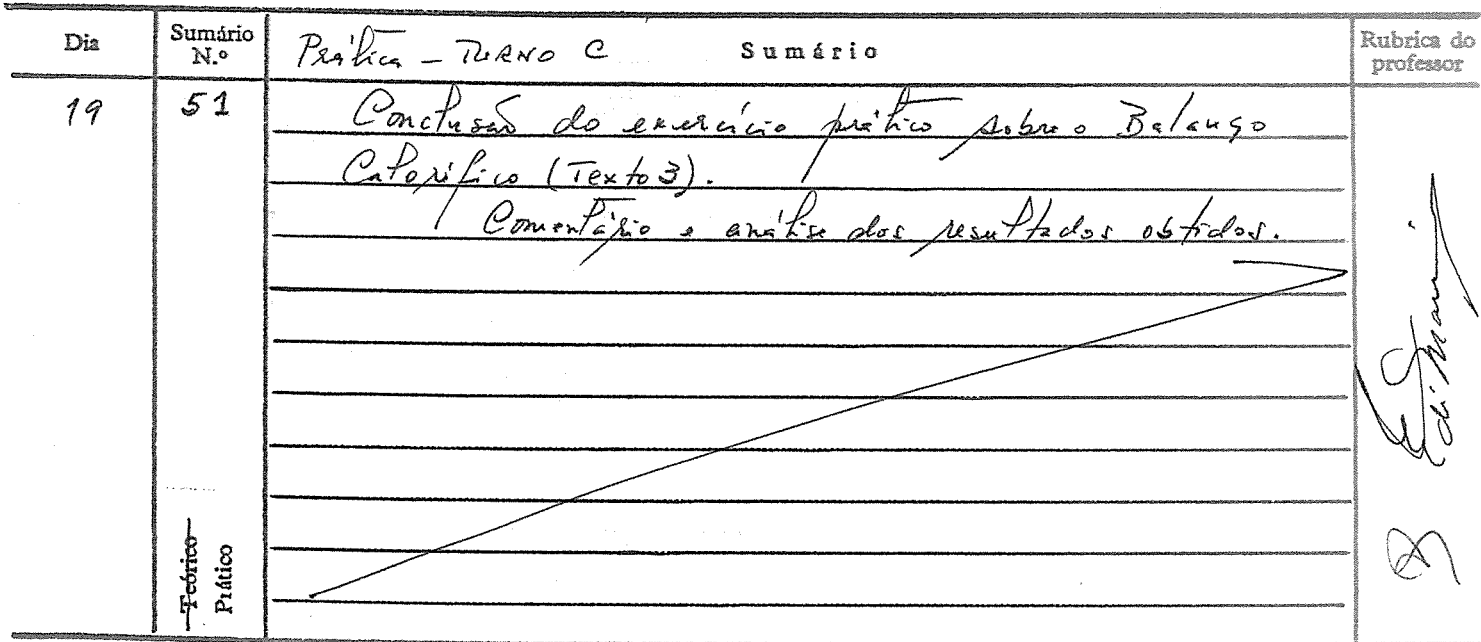 Dia
Sumário N.º
Prática - TURNO C Sumário
Rubrica do professor
19
51
Conclusão do exercício prático sobre o Balanço
Calorífico (Texto 3).
Comentário e análise dos resultados obtidos.
Teórico
Prático